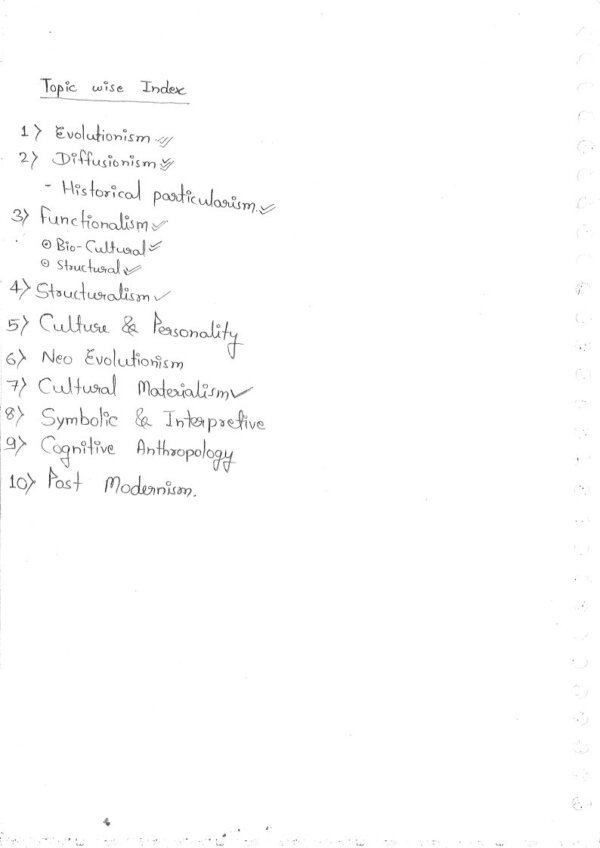 Topic wise Index
1) Evolutionism
2) Diffusionism
- Historical particularism
3) Functionalism
Bio-Cultural
Structural
4) Structuralism
5) Culture & Personality
6) Neo Evolutionism
7) Cultural Materialism
8) Symbolic & Interpretive
9) Cognitive Anthropology
10) Post Modernism.